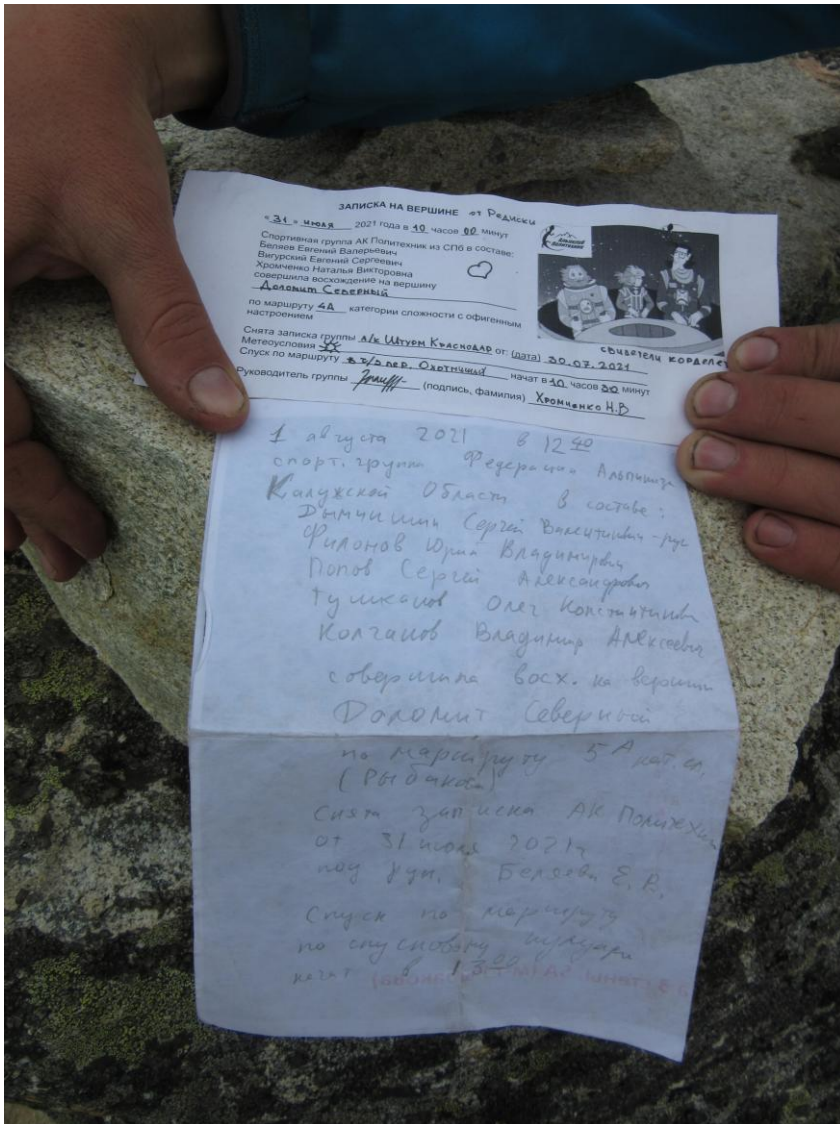 ЗАПИСКА НА ВЕРШИНЕ от Редиски
«31» июля 2021 года в 10 часов 00 минут
Спортивная группа АК Политехник из СПб в составе:
Беляев Евгений Валерьевич
Вигурский Евгений Сергеевич
Хромченко Наталья Викторовна
совершила восхождение на вершину
Доломит Северный
по маршруту 4А категории сложности с офигенным
настроением
Снята записка группы а/к Штурм Краснодар от: (дата) 30.07.2021
Метеоусловия
Спуск по маршруту в пер. Охотничий начат в 10 часов 30 минут
Руководитель группы (подпись, фамилия) Хромченко Н.В
Альпклуб
Политехник
свидетели кордалет
1 августа 2021 в 12 40
спорт. группа Федерации Альпинизма
Калужской Области в составе:
Сергей Валентинович - рук
Филонов Юрий Владимирович
Попов Сергей Александрович
Тушканов Олег Константинович
Колганов Владимир Алексеевич
совершила восх. на вершину
Доломит Северный
по маршруту 5А кат. сл.
(Рыбакова)
Снята записка АК Политехник
от 31 июля 2021г
под рук. Беляева Е.В.
Спуск по маршруту
по спусковому кулуару
начат в 13 00